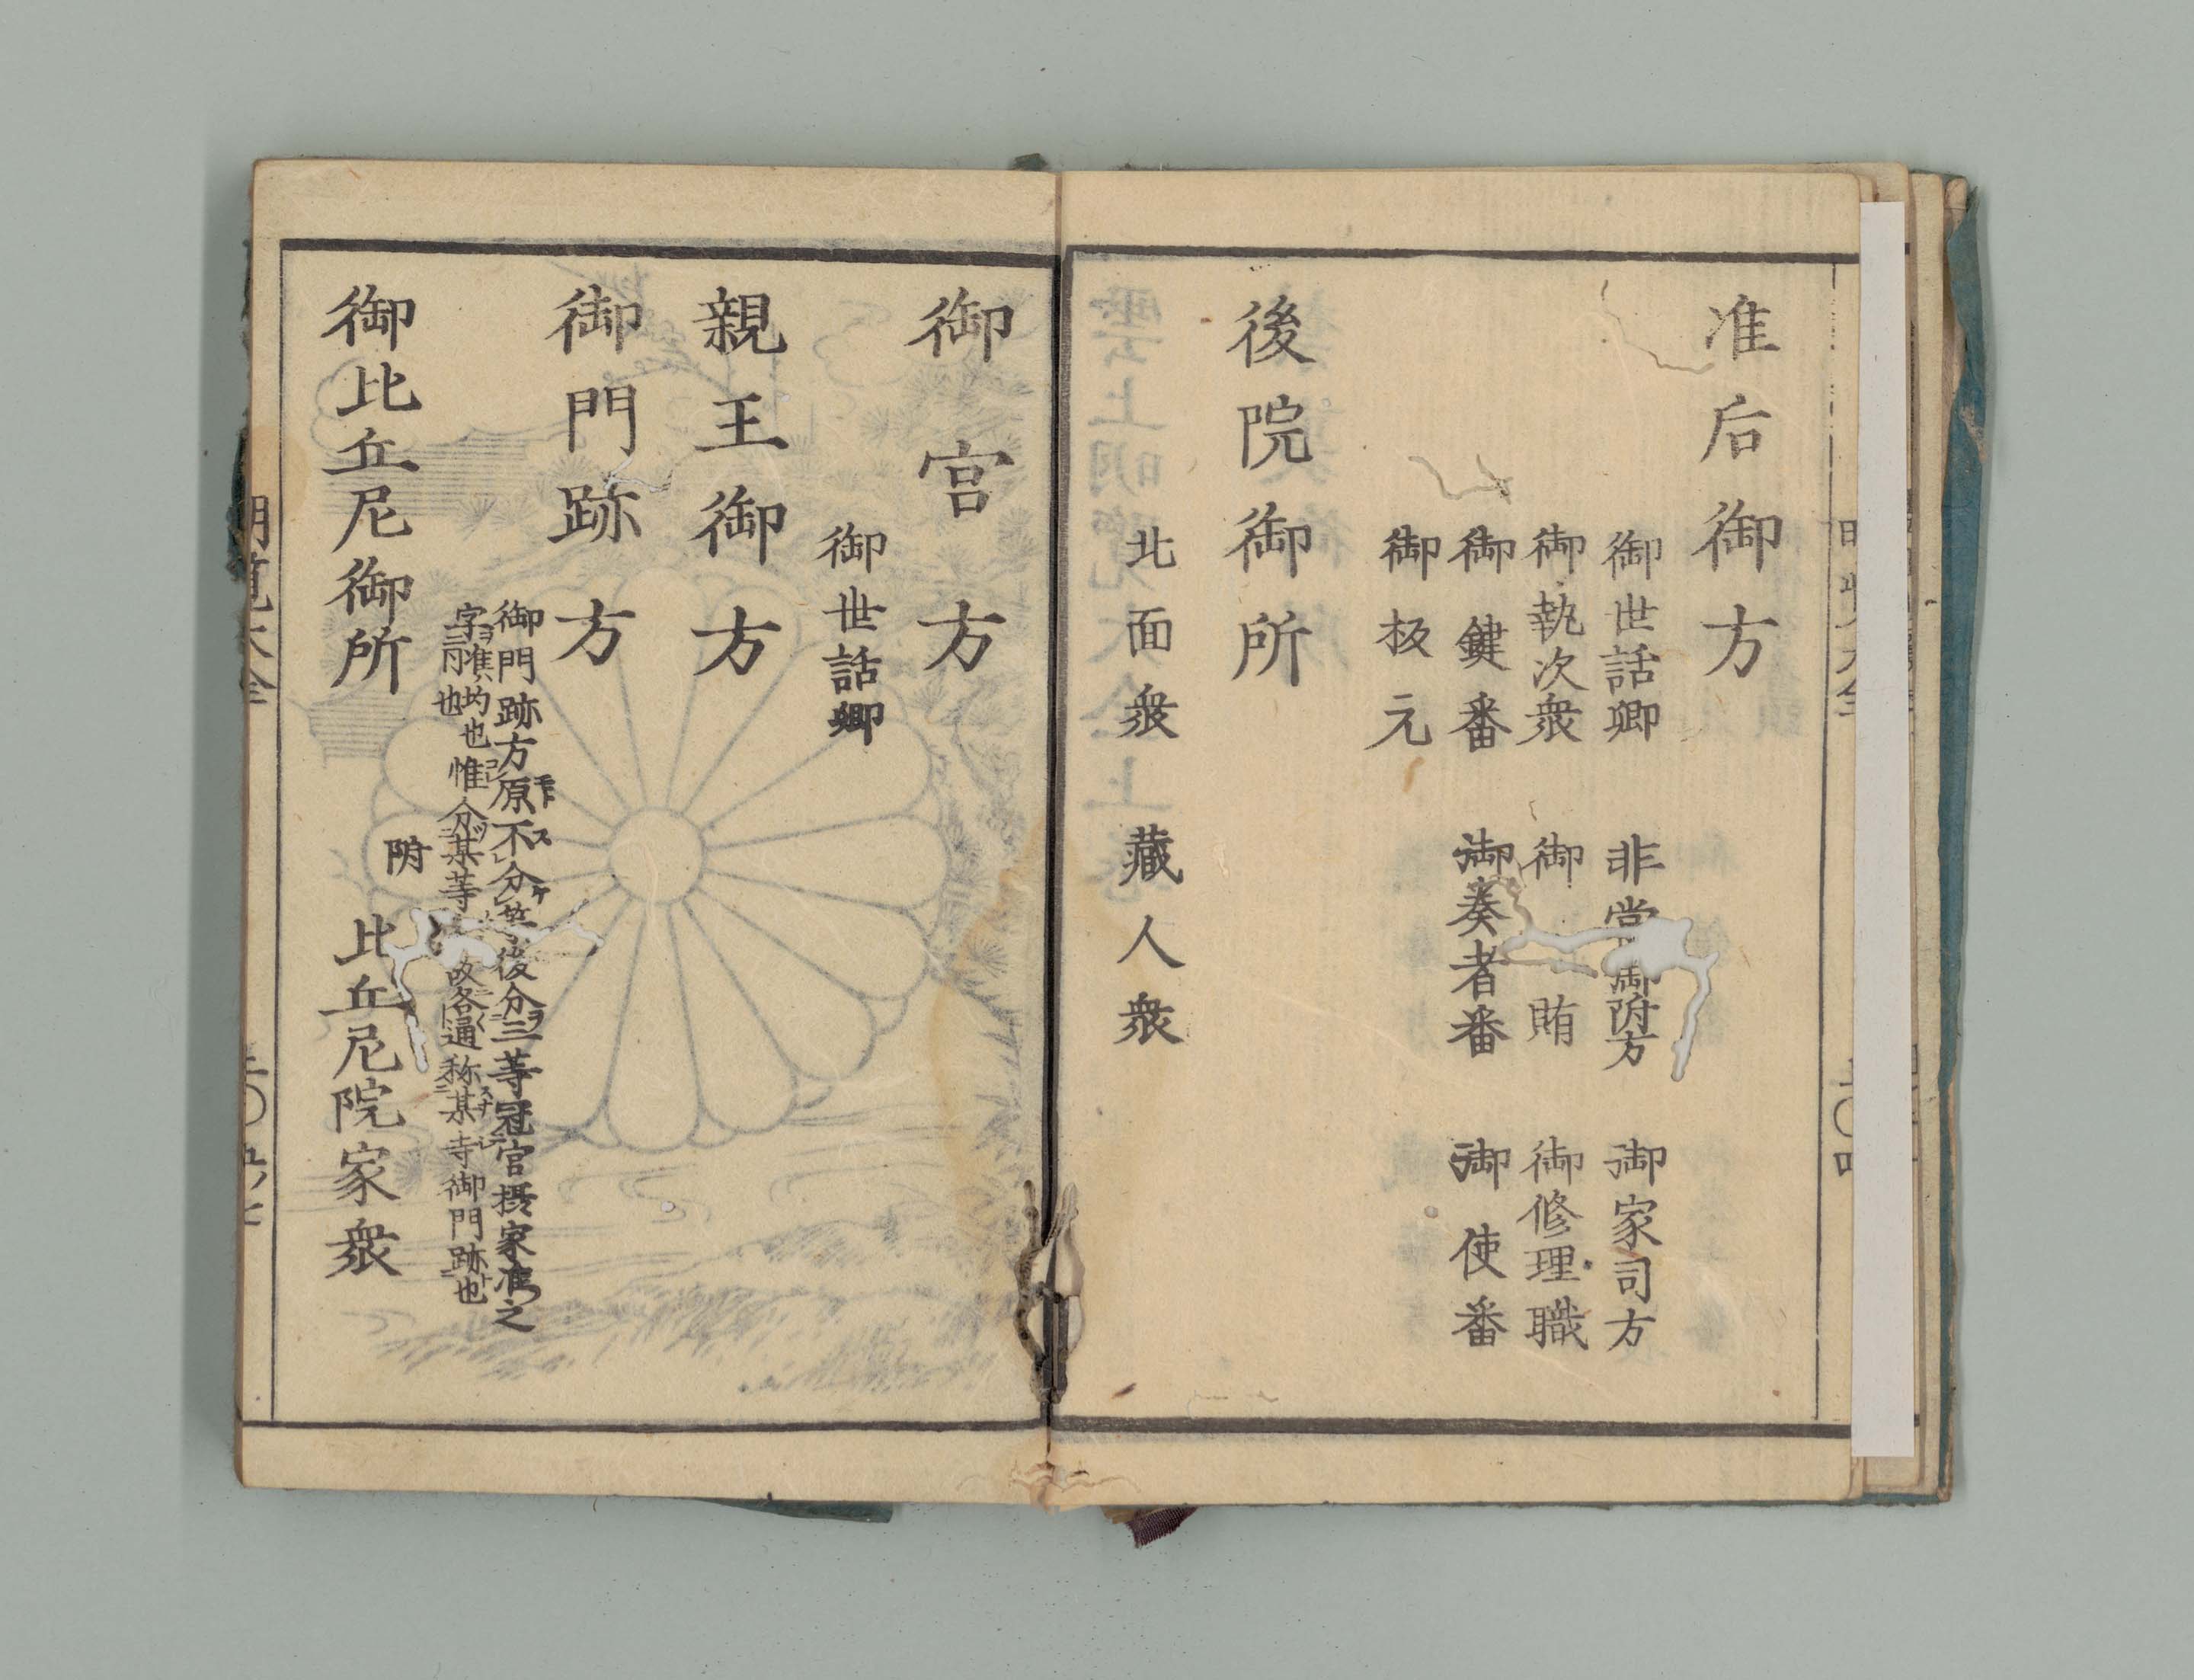 准后御方
御世話卿 非常御附方 御家司方
御執次衆 御賄 御修理職
御鍵番 御奏者番 御使番
御板元
後院御所
北面衆 蔵人衆
御宮方
御世話卿
親王御方
御門跡方
御門跡方原不分等後分三等冠官摂家准之
字准均也惟分某等 故各通称某寺御門跡也
御比丘尼御所
附 比丘尼院家衆